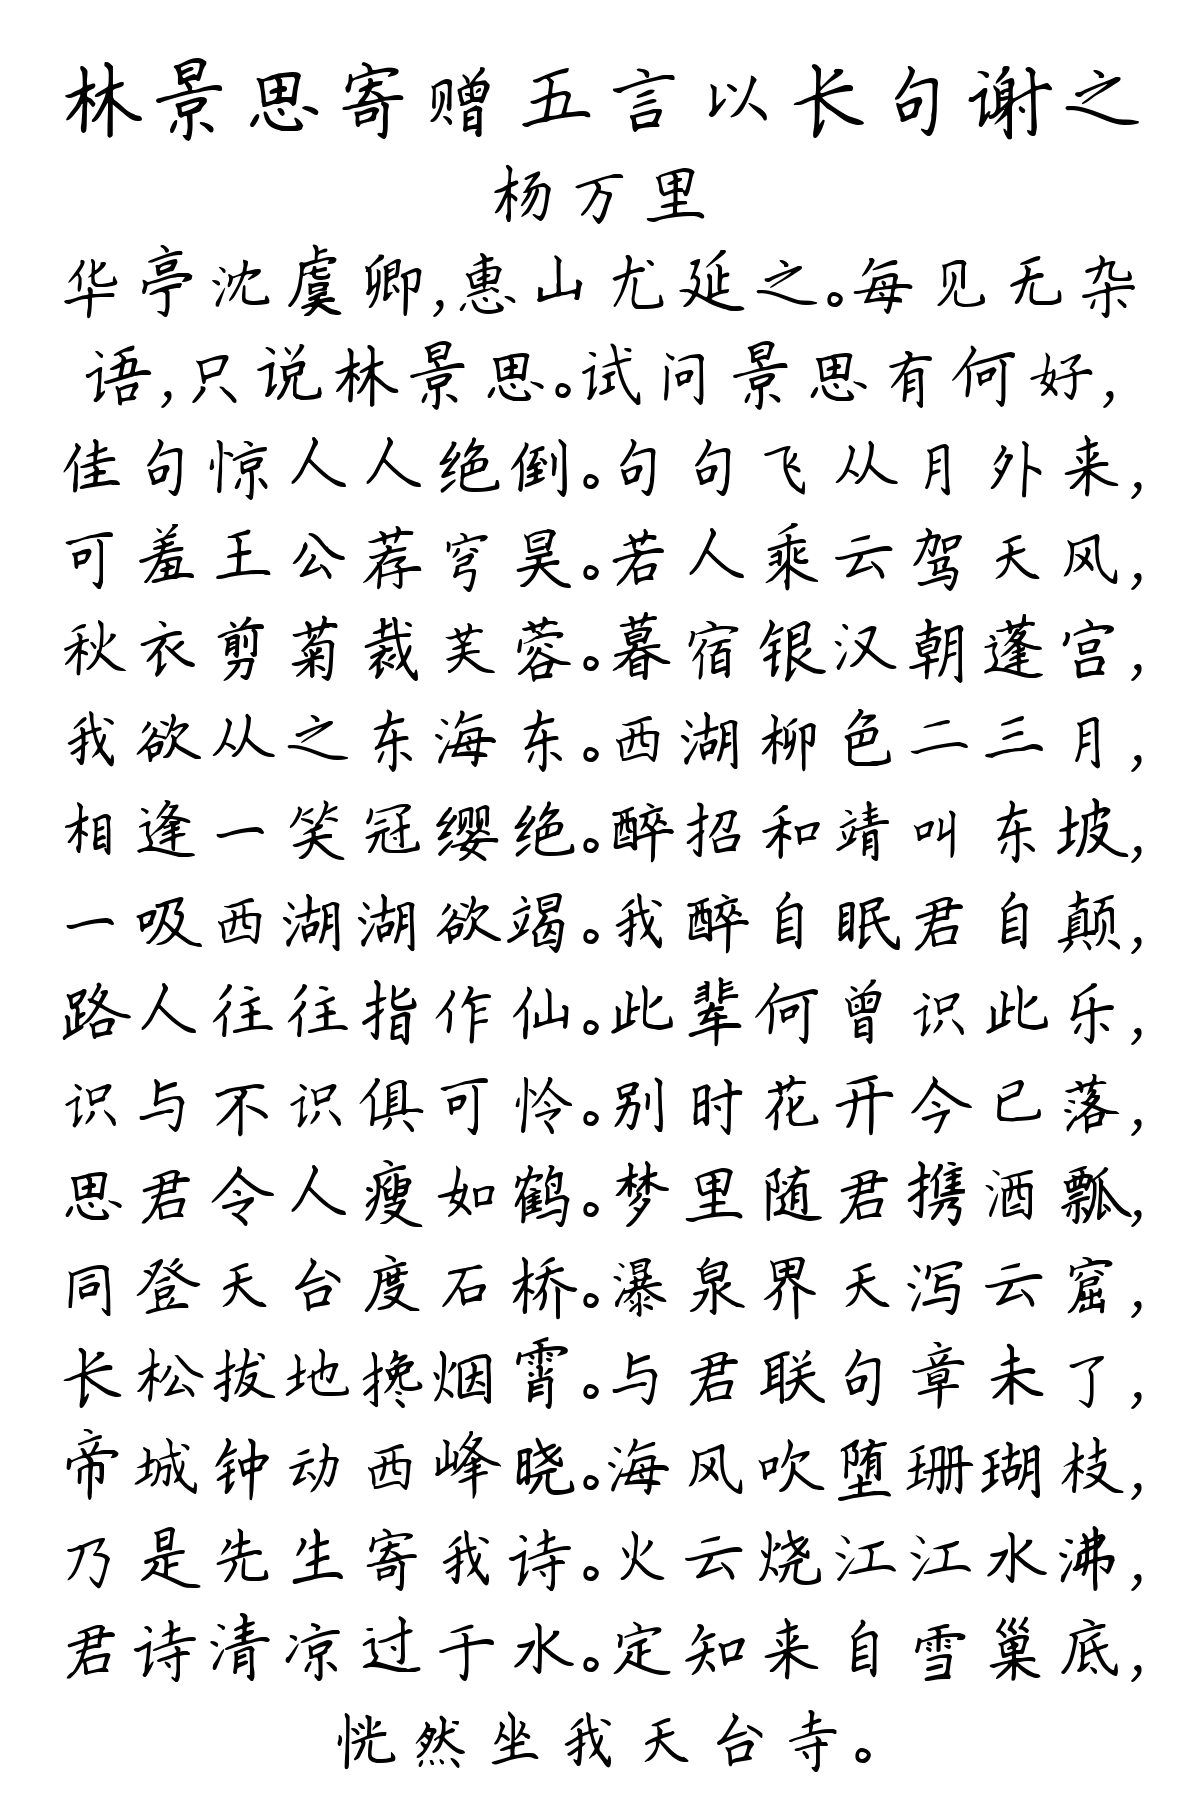 林景思寄赠五言以长句谢之
杨万里
华亭沈虞卿,惠山尤延之。每见无杂
语,只说林景思。试问景思有何好,
佳句惊人人绝倒。句句飞从月外来,
可羞王公荐穹昊。若人乘云驾天风,
秋衣剪菊裁芙蓉。暮宿银汉朝蓬宫,
我欲从之东海东。西湖柳色二三月,
相逢一笑冠缨绝。醉招和靖叫东坡,
一吸西湖湖欲竭。我醉自眠君自颠,
路人往往指作仙。此辈何曾识此乐,
识与不识俱可怜。别时花开今已落,
思君令人瘦如鹤。梦里随君携酒瓢,
同登天台度石桥。瀑泉界天泻云窟,
长松拔地搀烟霄。与君联句章未了,
帝城钟动西峰晓。海风吹堕珊瑚枝,
乃是先生寄我诗。火云烧江江水沸,
君诗清凉过于水。定知来自雪巢底,
恍然坐我天台寺。